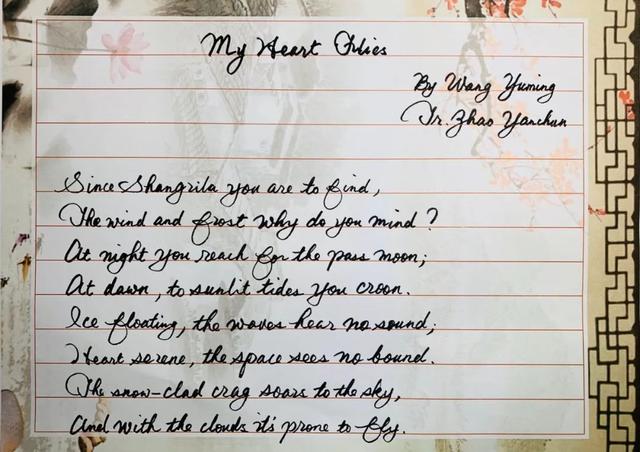 My Heart Flies
By Wang Yuming
Tr. Zhao Yanchun
Since Shangrila you are to find,
The wind and frost why do you mind?
At night you reach for the pass moon;
At dawn, to sunlit tides you croon.
Ice floating, the waves hear no sound;
Heart serene, the space sees no bound.
The snow-clad crag soars to the sky,
And with the clouds it's prone to fly.